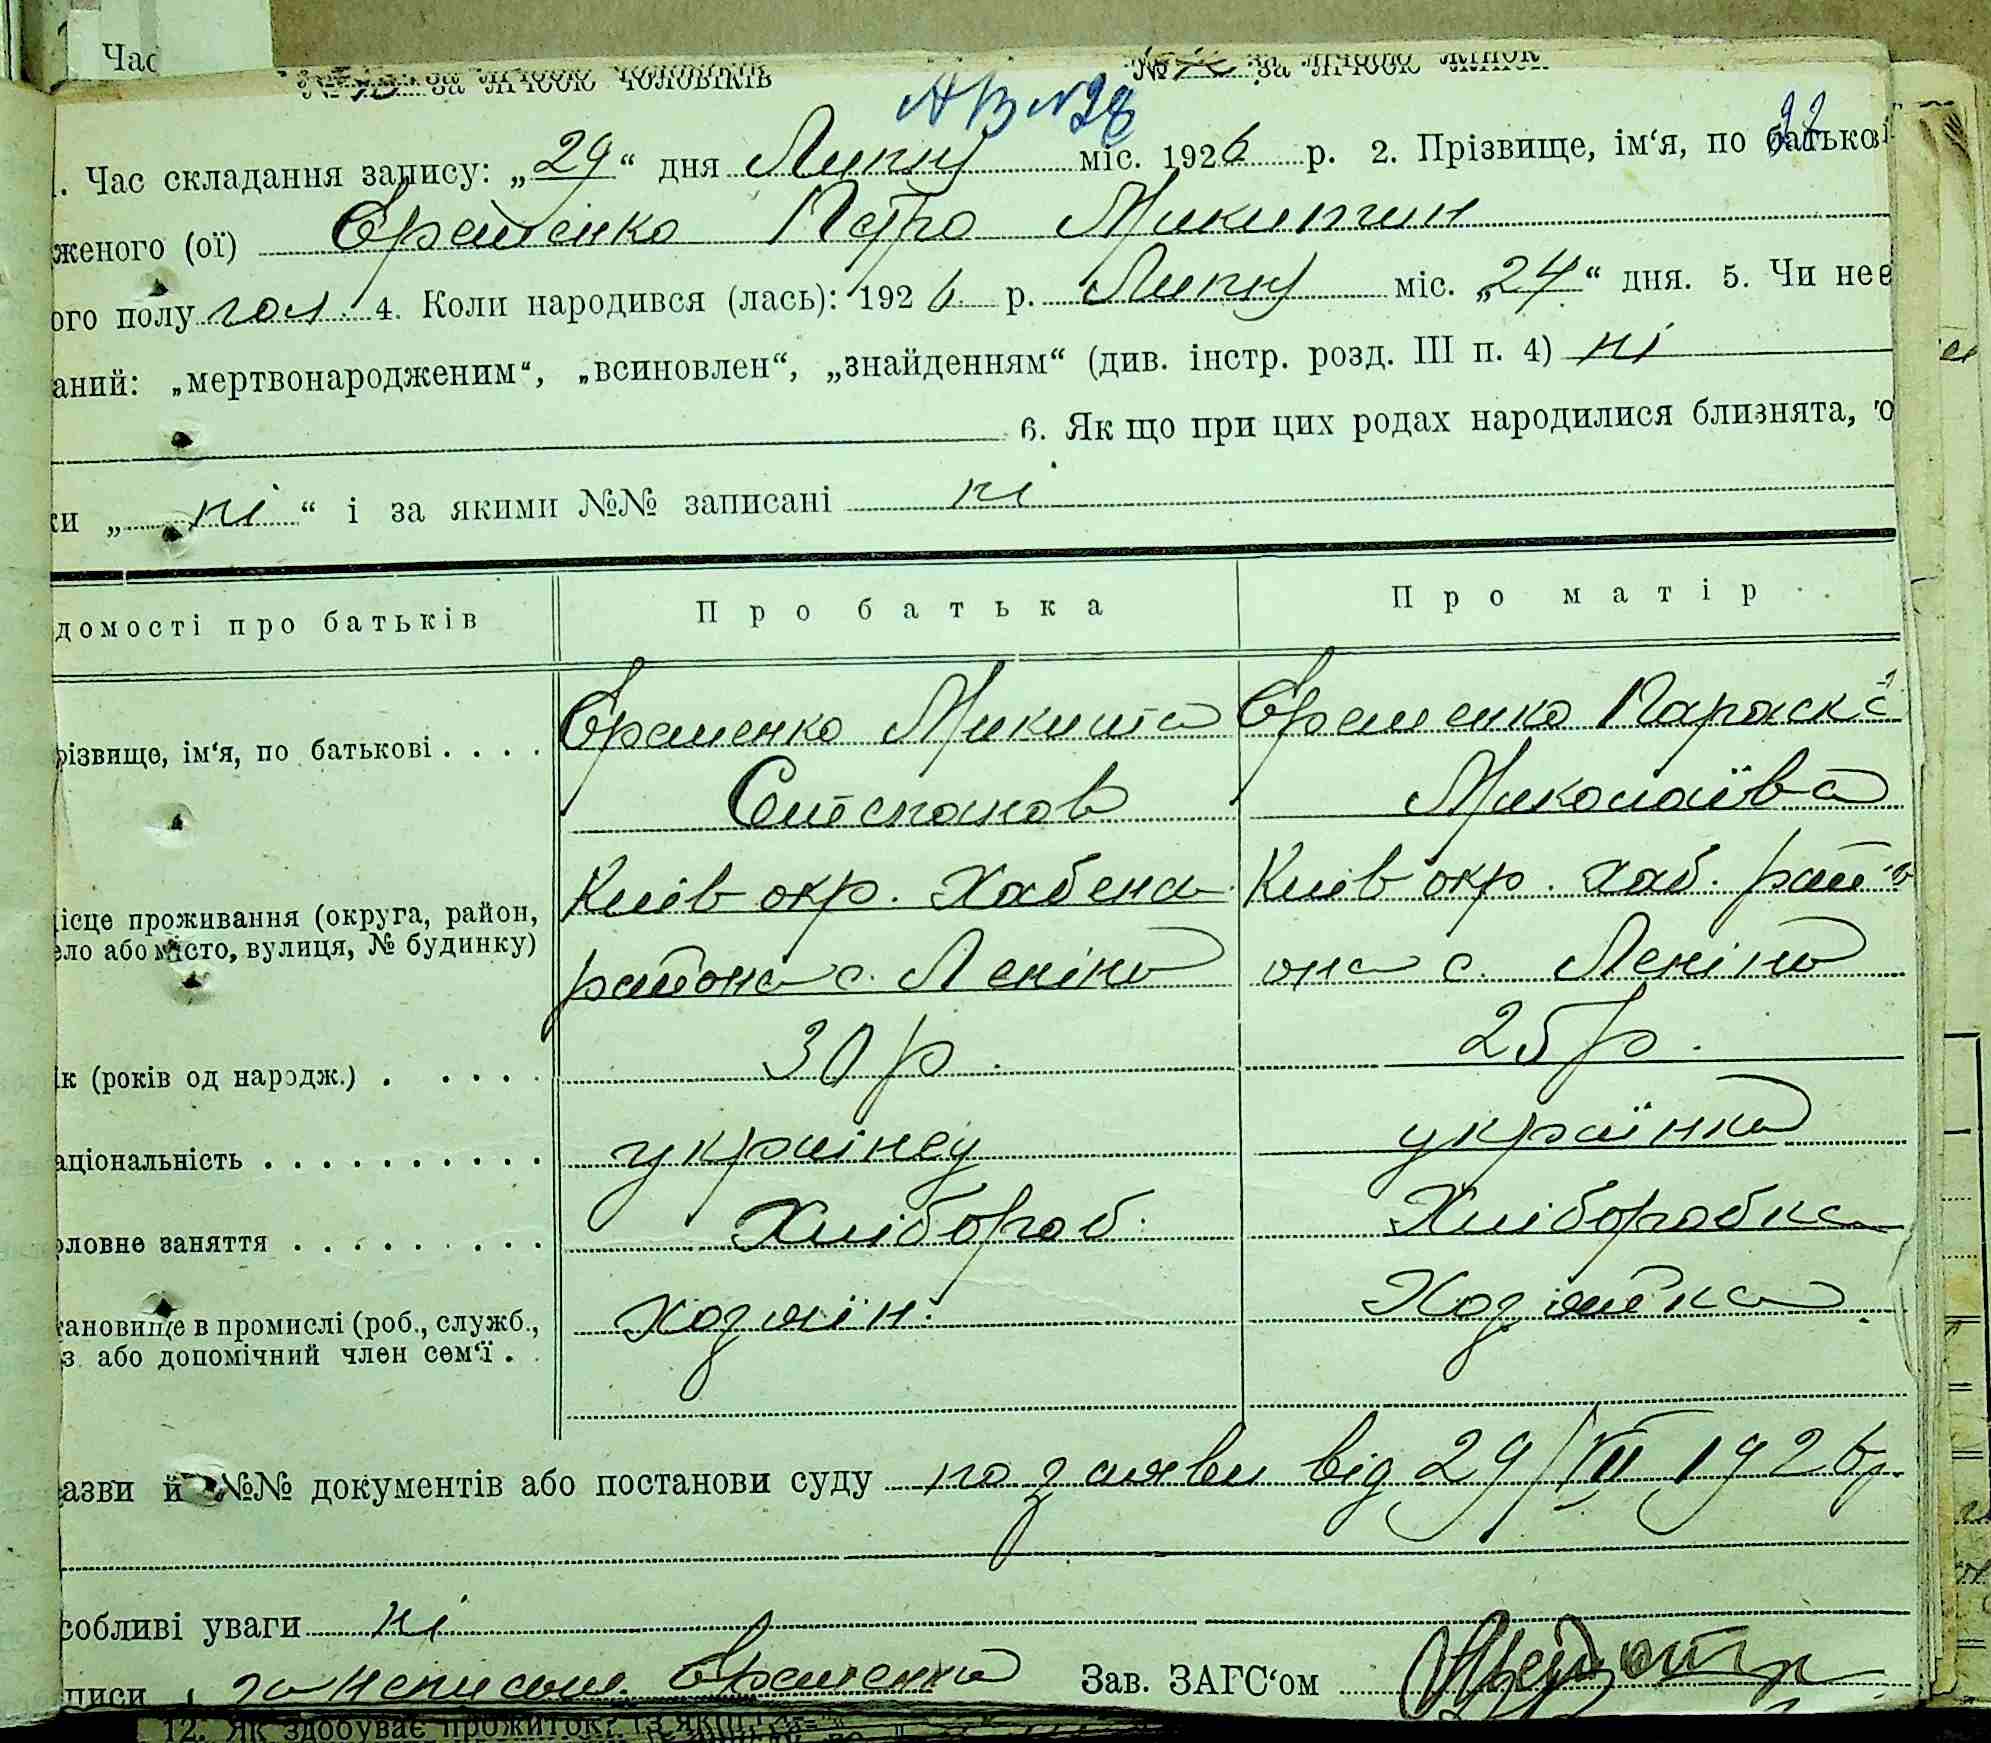 Час
№ за лічбою чоловіків № за лічбою жінок
АВ №28
22
1. Час складання запису: „29“ дня Липня міс. 1926 р. 2. Прізвище, ім‘я, по батькові
женого (ої) Єременко Петро Микитин
ого полу чол. 4. Коли народився (лась): 1926 р. Липня міс. „24“ дня. 5. Чи не є
аний: „мертвонародженим“, „всиновлен“, „знайденням“ (див. інстр. розд. III п. 4) ні
6. Як що при цих родах народилися близнята, то
ки „ні“ і за якими №№ записані ні
домості про батьків Про батька Про матір
різвище, ім‘я, по батькові . . . . Єременко Микита Єременко Параска
Степанов Миколаїва
ісце проживання (округа, район, Київ окр. Хабена Київ окр. Хаб. рай
ело або місто, вулиця, № будинку) района с. Леніно она с. Леніно
ік (років од народж.) . . . . . 30 р. 25 р.
аціональність . . . . . . . . . . українец українка
оловне заняття . . . . . . . . . Хлібороб. Хліборобка
тановище в промислі (роб., служб., хозяїн. Хозяйка
з або допомічний член сем‘ї . .
азви й №№ документів або постанови суду по заяви від 29/VII 1926 р.
собливі уваги ні
писи за неписьм. Єременка Зав. ЗАГС‘ом
12. Як здобуває прожиток?